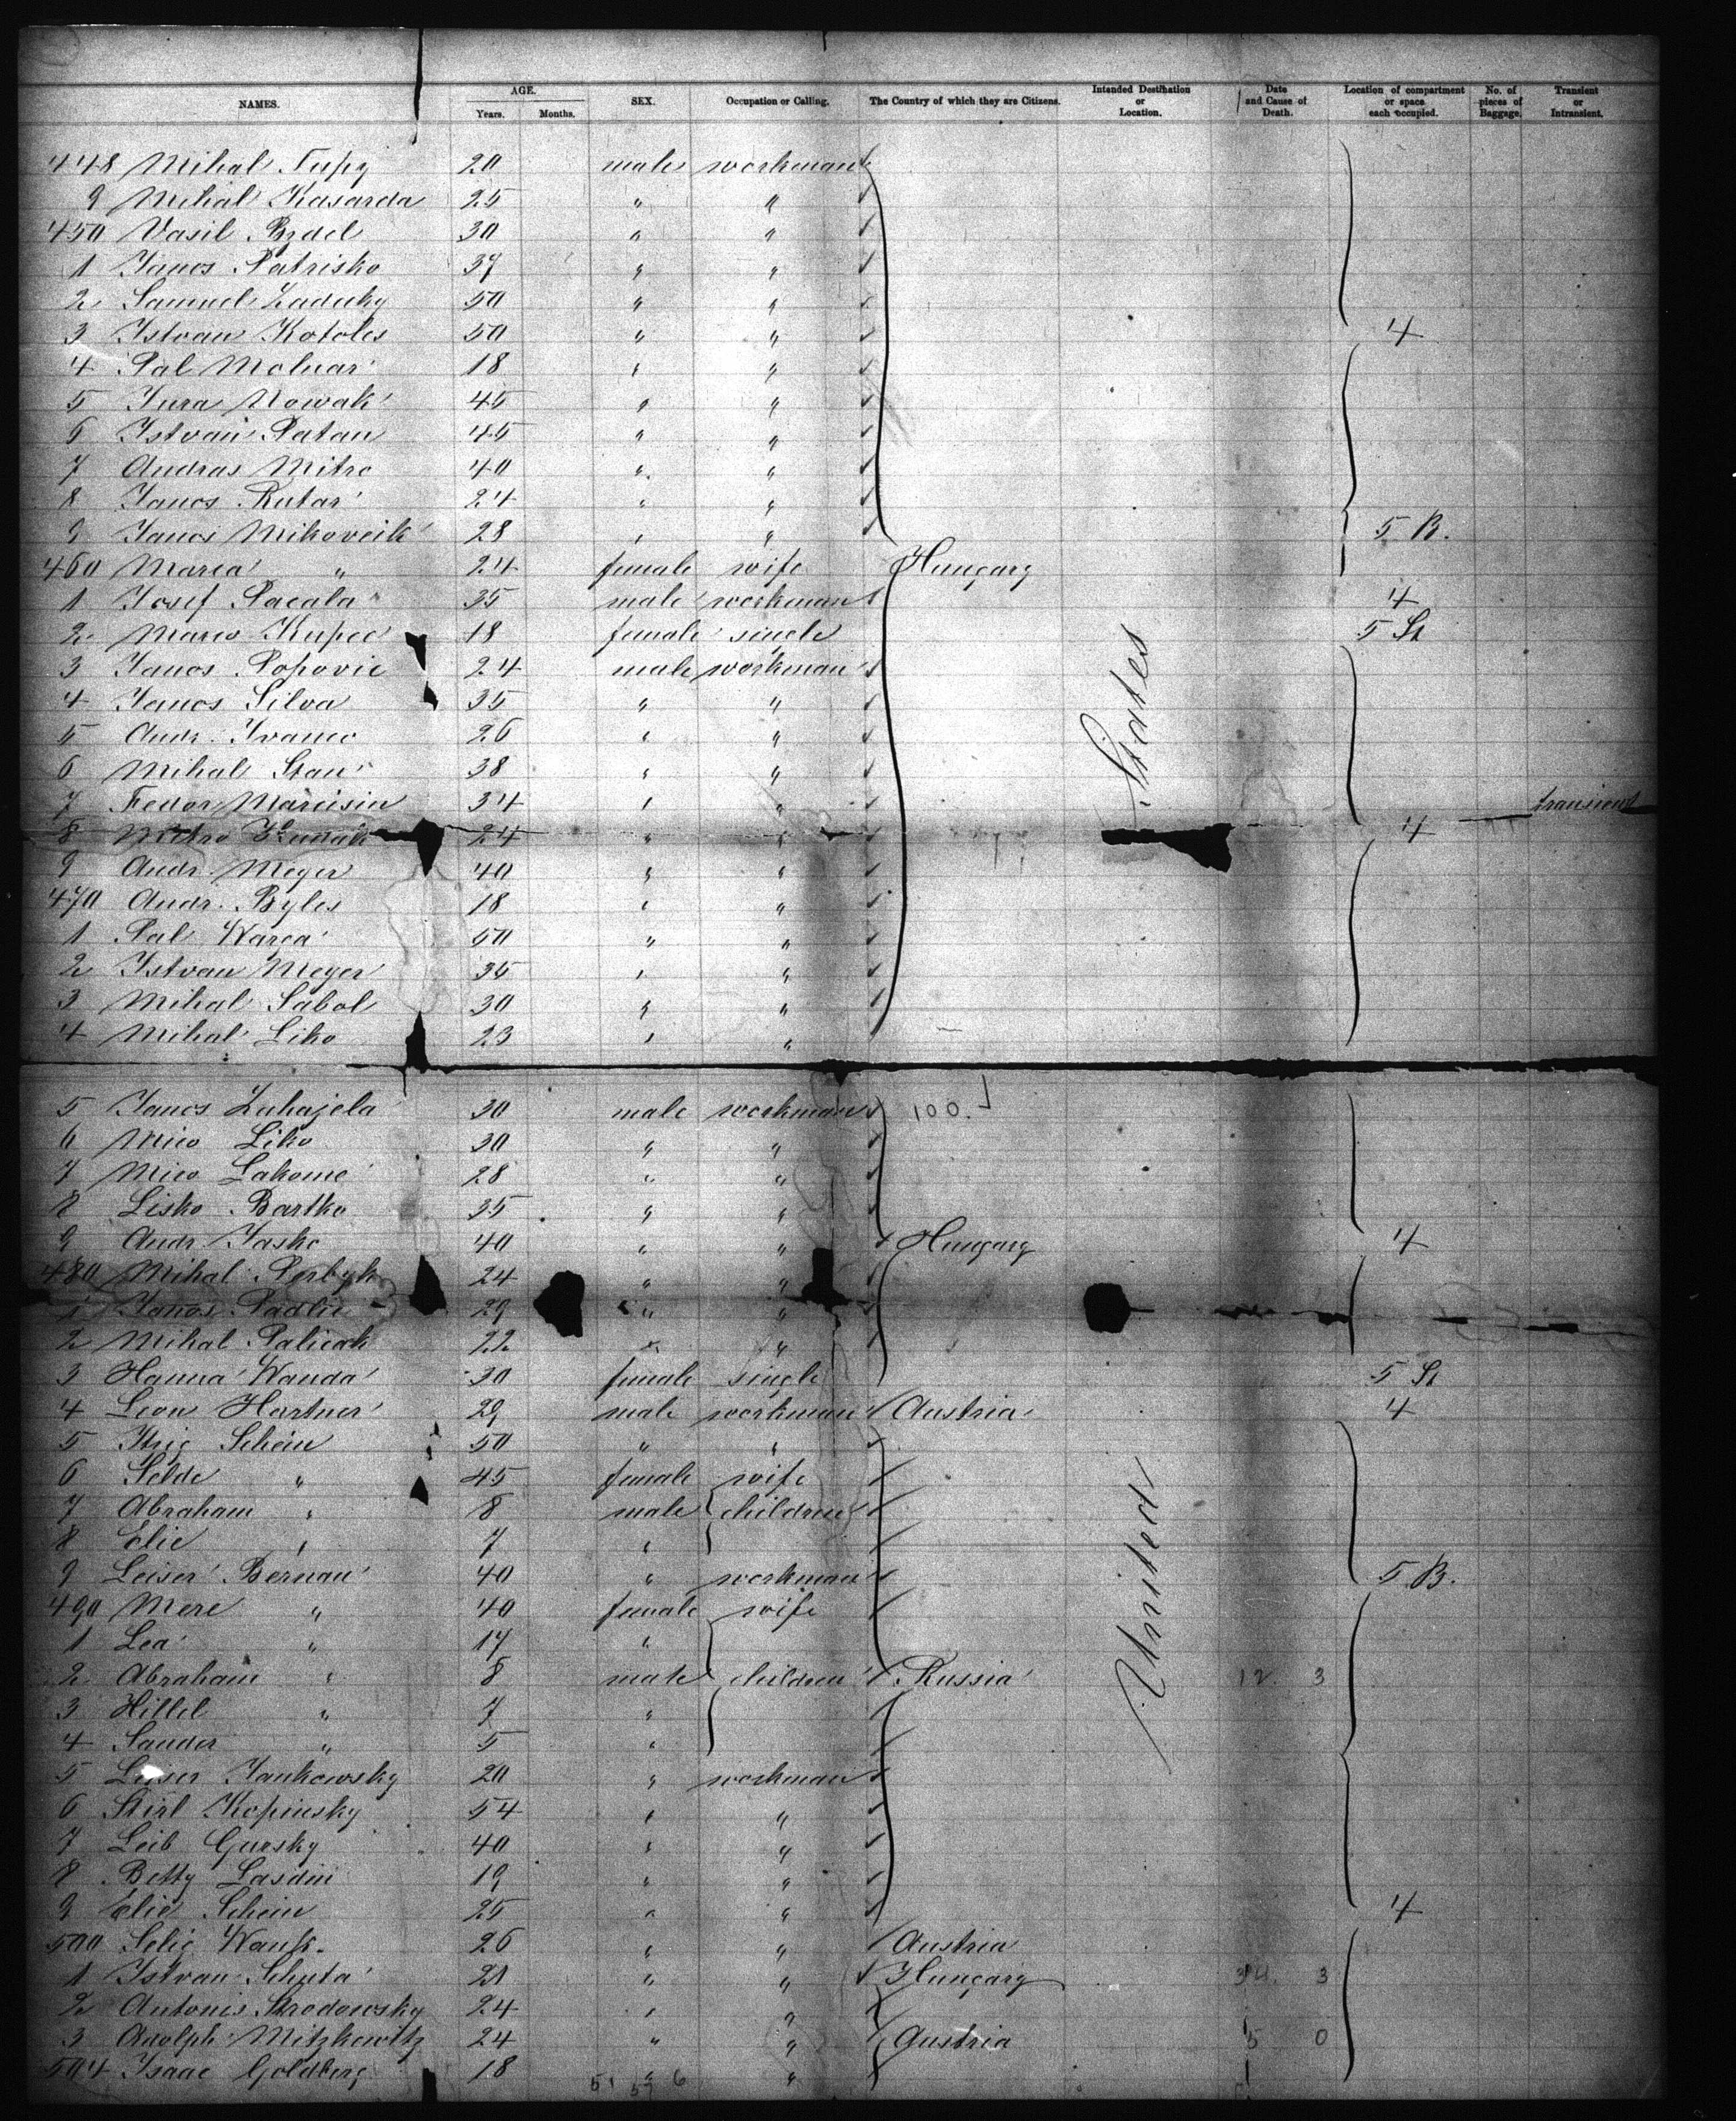 NAMES. AGE. Years. Months. SEX. Occupation or Calling. The Country of which they are Citizens. Intended Destination or Location. Date and Cause of Death. Location of compartment or space each occupied. No. of pieces of Baggage. Transient or Intransient.
448 Mihal Tupy 20 male workman
9 Mihal Kasarda 25 " "
450 Vasil Brdel 30 " "
1 Janos Patrisko 37 " "
2 Samuel Zaducky 50 " "
3 Istvan Kotoles 50 " " 4
4 Pal Molnar 18 " "
5 Jura Nowak 45 " "
6 Istvan Patan 45 " "
7 Andras Mitro 40 " "
8 Janos Rutar 24 " "
9 Janos Mikovcik 28 " " 5 B.
460 Marca " 24 female wife Hungary
1 Josef Pacala 35 male workman 4
2 Marco Kupec 18 female single 5 St
3 Janos Popovic 24 male workman
4 Janos Silva 35 " "
5 Andr. Ivanco 26 " "
6 Mihal Stan 38 " "
7 Fedor Marcisin 34 " " transient
8 Mitro 24 " " 4
9 Andr. Meyer 40 " "
470 Andr. Byles 18 " "
1 Pal Warga 50 " "
2 Istvan Meyer 35 " "
3 Mihal Sabol 30 " "
4 Mihal Liko 23 " "
States
5 Janos Zuhajela 30 male workman 100.
6 Mico Liko 30 " "
7 Mico Lakome 28 " "
8 Lisko Bartko 35 " "
9 Andr. Jasko 40 " " Hungary 4
480 Mihal Perbyk 24 " "
1 Janos Padlic 29 " "
2 Mihal Palicak 22 " "
3 Hanna Wanda 30 female single 5 St
4 Leon Hartner 29 male workman Austria 4
5 Itzig Schein 50 " "
6 Selde " 45 female wife
7 Abraham " 8 male children
8 Elie " 7 "
9 Leiser Bernan 40 " workman 5 B.
490 Mere " 40 female wife
1 Lea " 17 "
2 Abraham " 8 male children Russia 12. 3
3 Hillel " 7 "
4 Sander " 5 "
5 Leiser Jankowsky 20 " workman
6 Stirl Kopinsky 54 " "
7 Leib Gursky 40 " "
8 Betty Lasdin 19 " "
9 Elie Schein 25 " " 4
500 Selig 26 " " Austria
1 Istvan Schuta 21 " " Hungary 34. 3
2 Antonis Strodowsky 24 " "
3 Adolph Mitzkewitz 24 " " Austria 5 0
504 Isaac Goldberg 18 " "
United